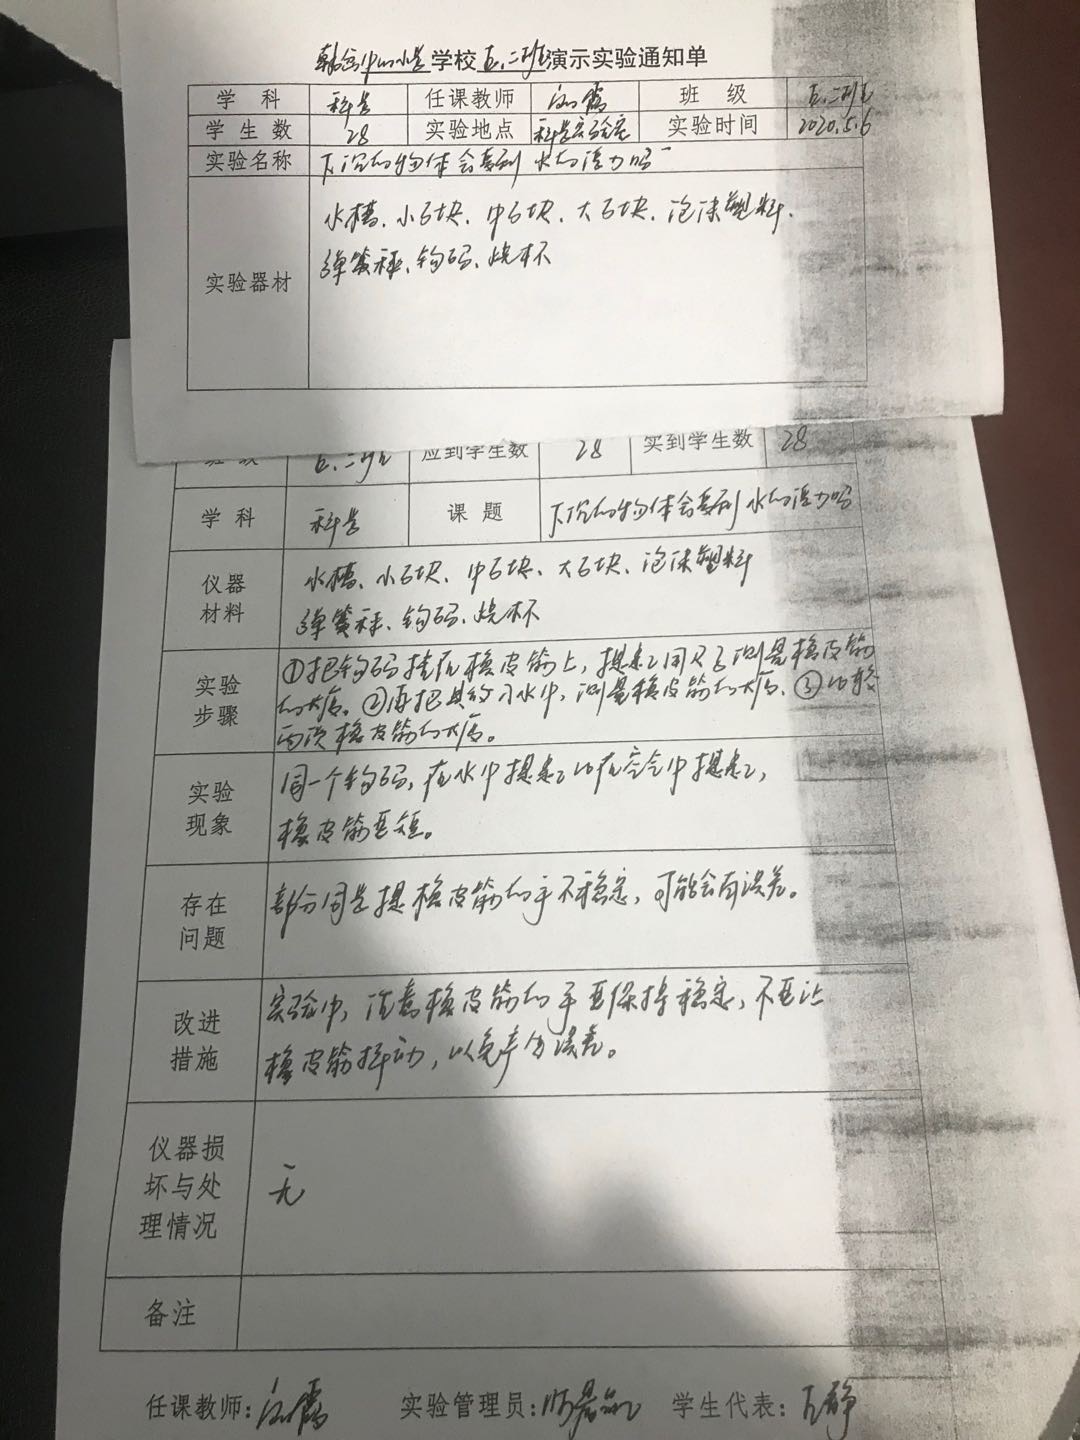 学校五.二班演示实验通知单
学 科 科学 任课教师 班 级 五.二班
学 生 数 28 实验地点 科学实验室 实验时间 2020.5.6
实验名称 下沉的物体会受到水的浮力吗
水槽、小石块、中石块、大石块、泡沫塑料、
实验器材 弹簧秤、钩码、烧杯
班 级 五.二班 应到学生数 28 实到学生数 28
学 科 科学 课 题 下沉的物体会受到水的浮力吗
仪器 水槽、小石块、中石块、大石块、泡沫塑料
材料 弹簧秤、钩码、烧杯
实验 ①把钩码挂在橡皮筋上，提起用尺子测量橡皮筋
步骤 的长度。②再把其放入水中，测量橡皮筋的长度、③比较
两次橡皮筋的长度。
实验 同一个钩码，在水中提起比在空气中提起，
现象 橡皮筋要短。
存在 部分同学提橡皮筋的手不稳定，可能会有误差。
问题
改进 实验中，注意橡皮筋的手要保持稳定，不要让
措施 橡皮筋抖动，以免产生误差。
仪器损
坏与处 无
理情况
备注
任课教师： 实验管理员： 学生代表：